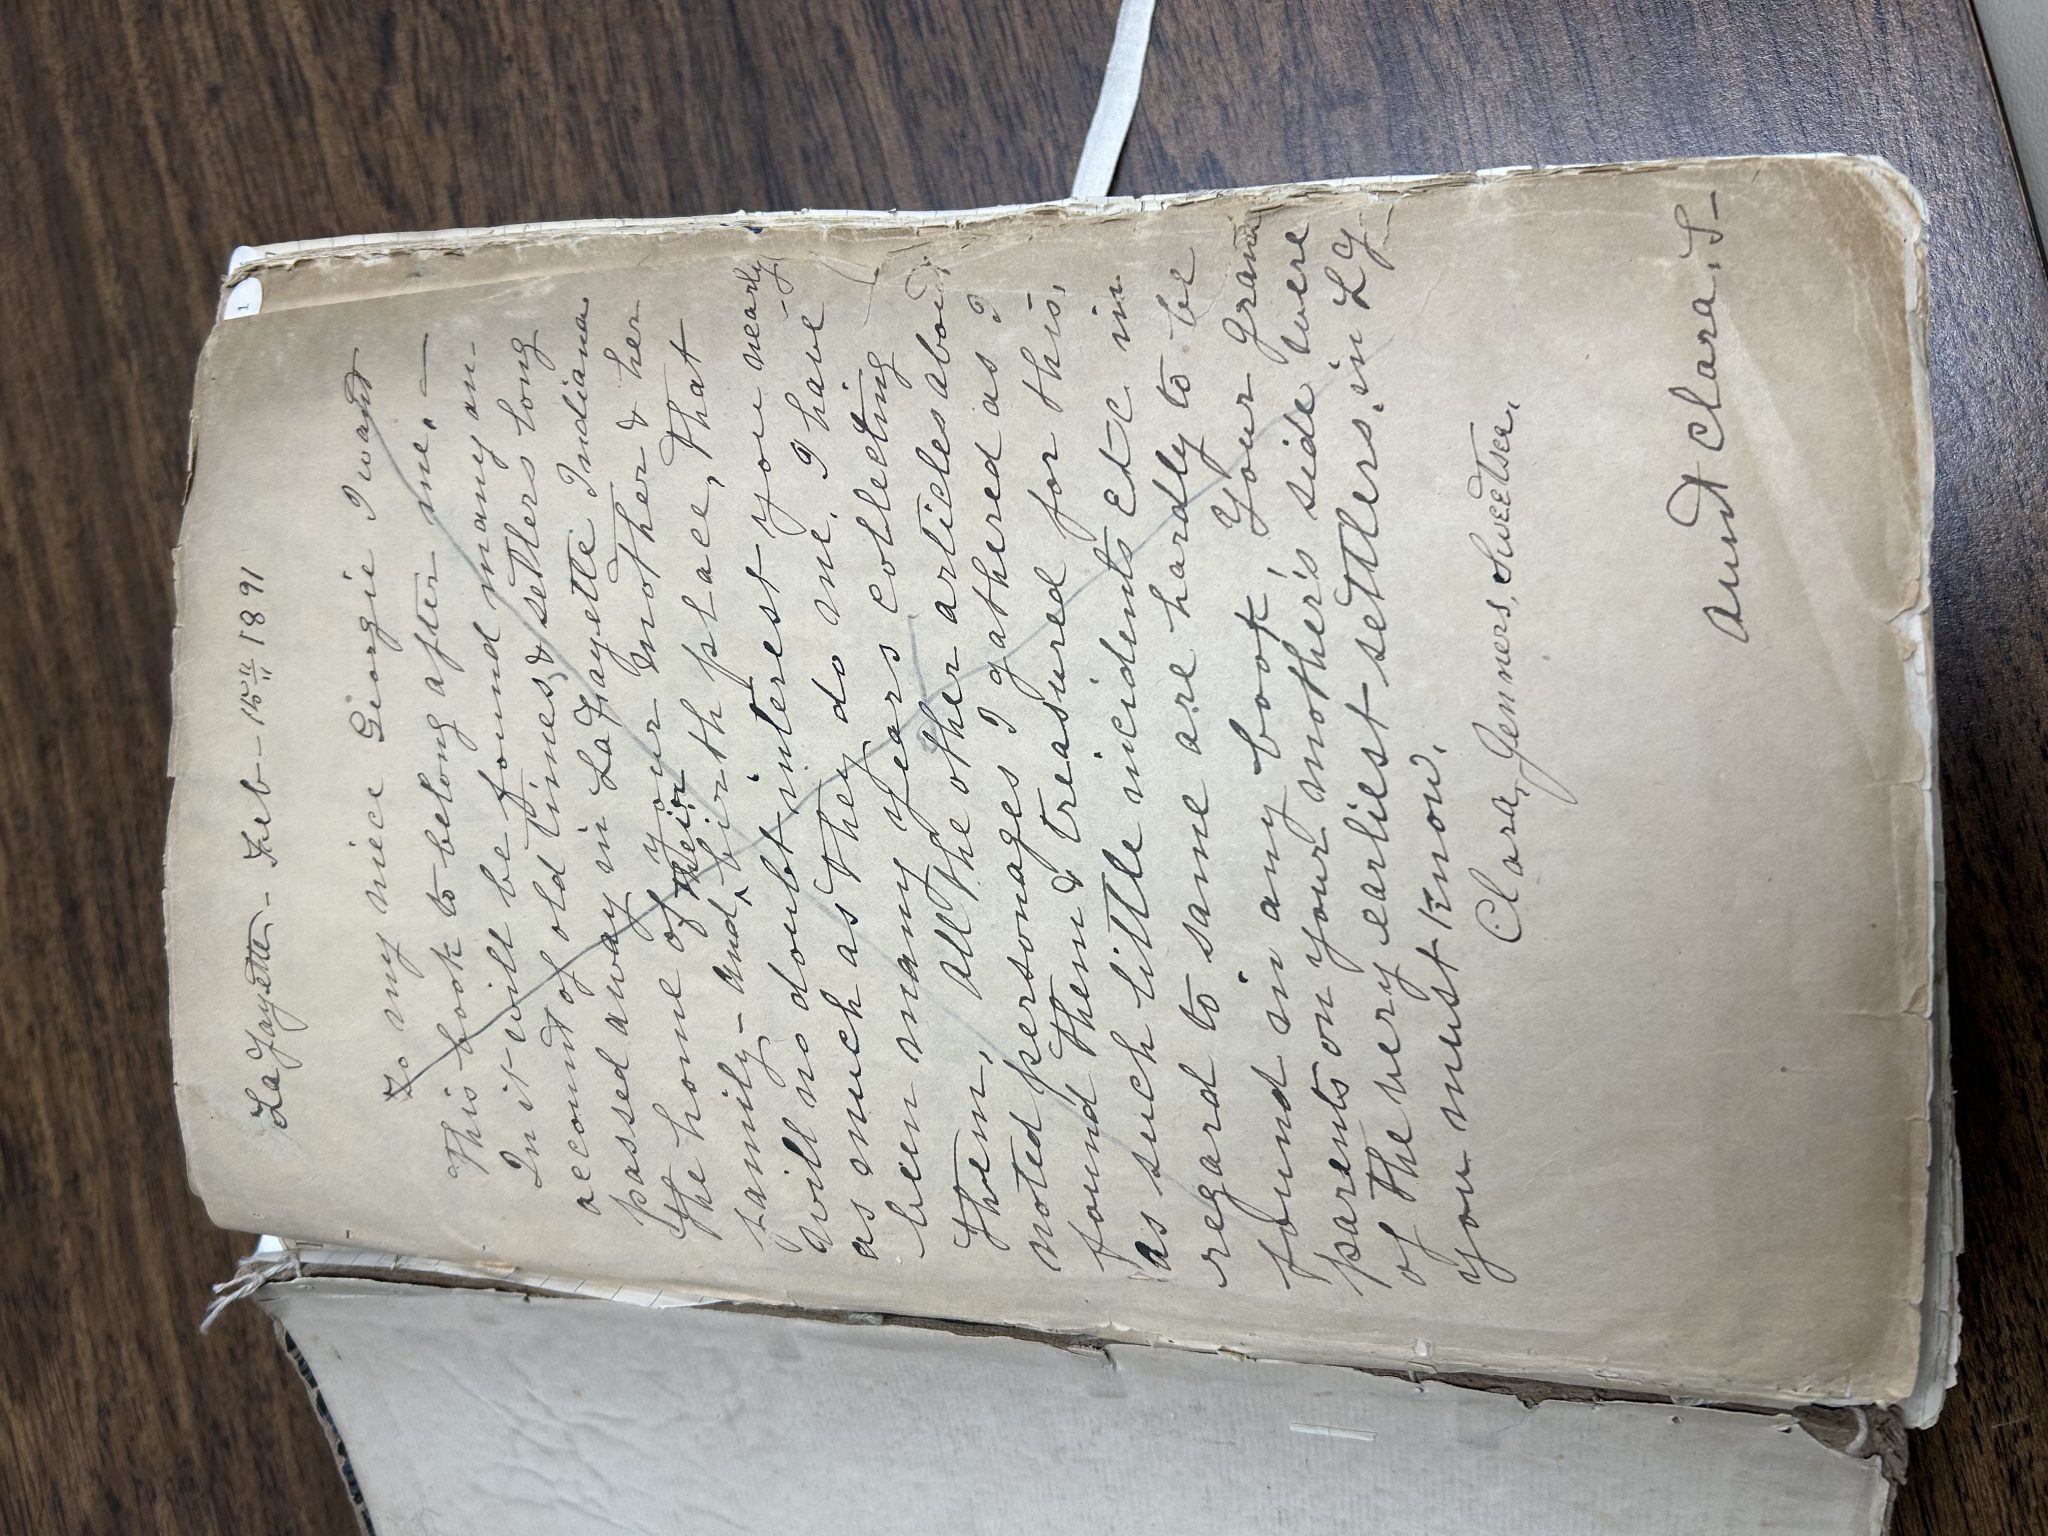 1
LaFayette - Feb - 15" 1891
To my niece Georgie I want
This book to belong after me. —
In it will be found many an
account of old times, & settlers long
passed away in LaFayette Indiana
the home of your mother & her
family - and their birth place, That
will no doubt interest you nearly
as much as they do me. I have
been many years collecting
them, all the other articles about
noted personages I gathered as I
found them & treasured for this,
as such little incidents Etc in
regard to same are hardly to be
found in any book, Your grand
parents on your mother's side were
of the very earliest settlers in L Y
you must know.
Clara, Jenners, Sweetser,
Aunt Clara. S -